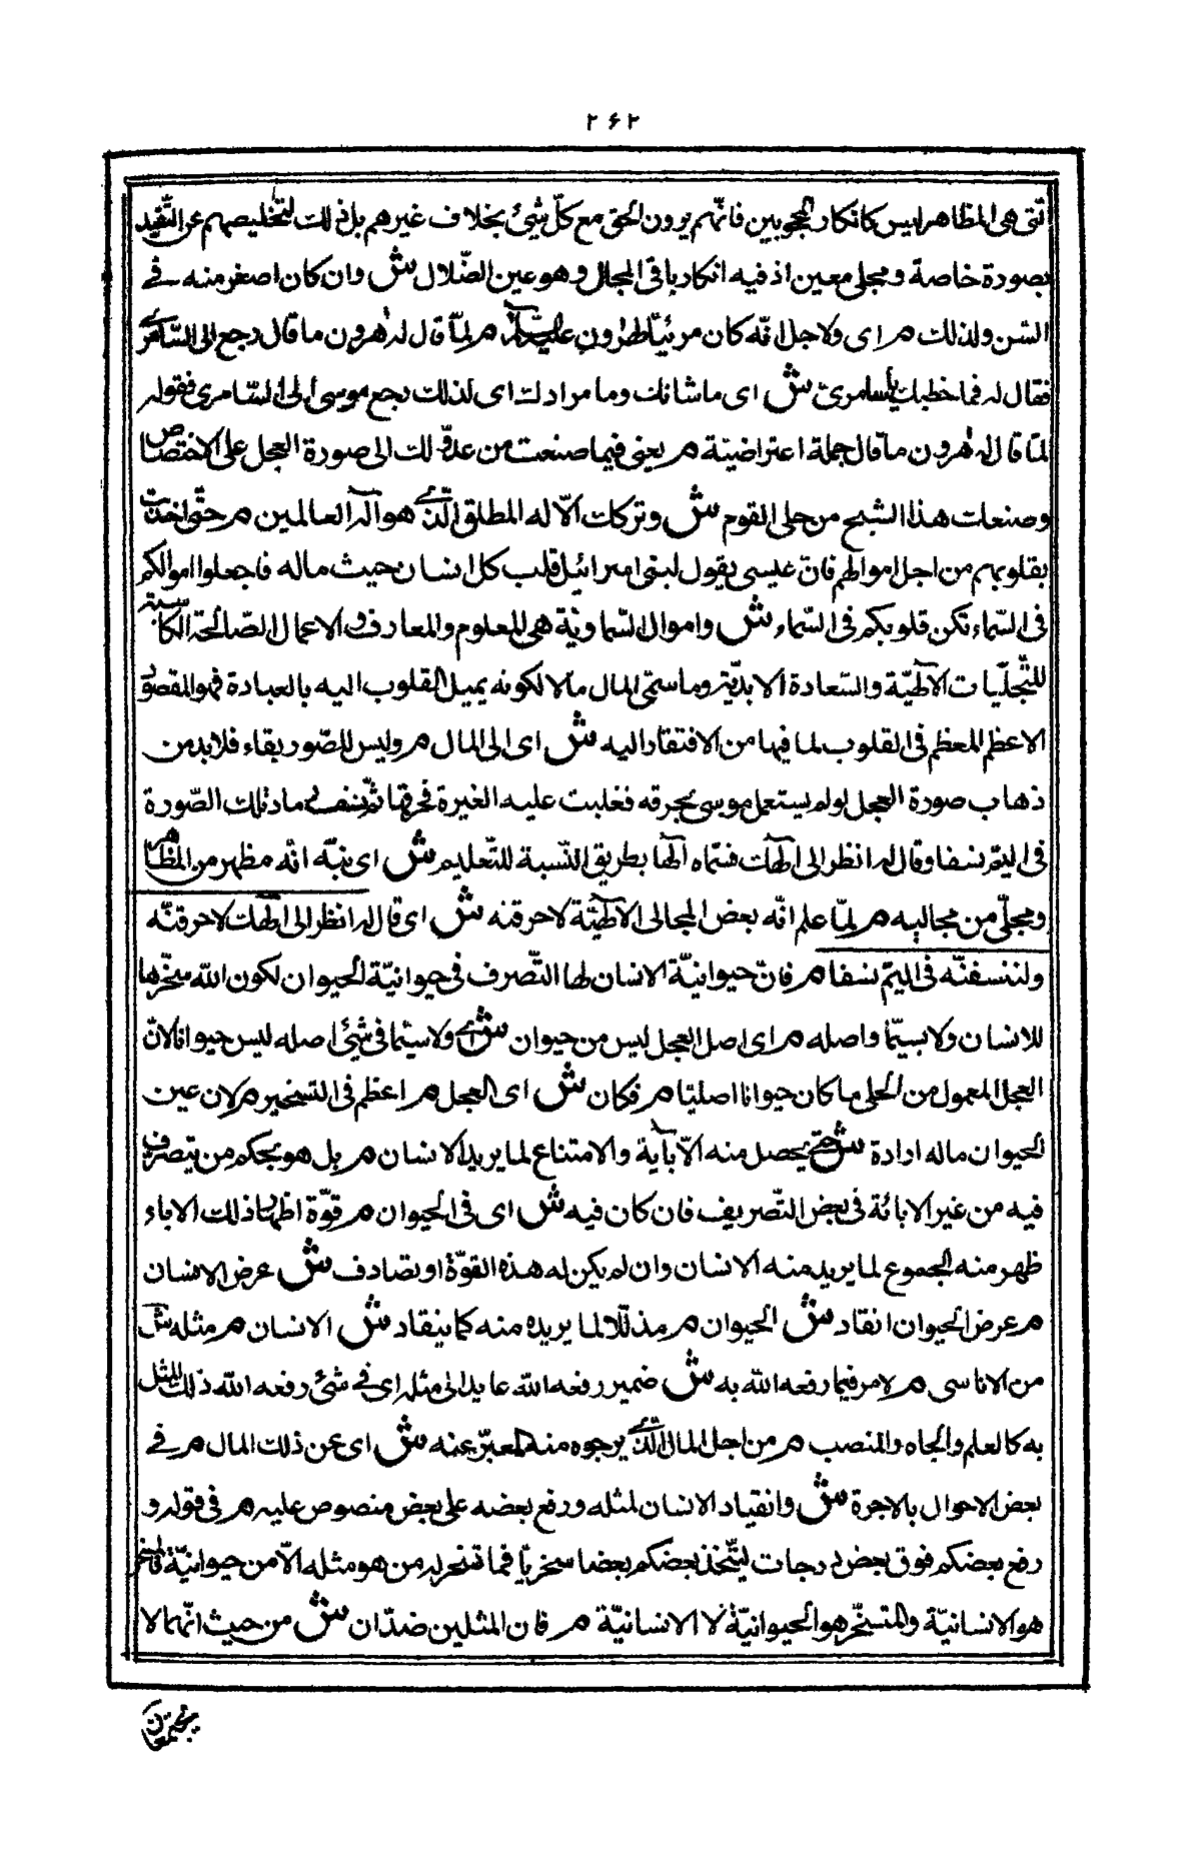 ۲۶۲
الّتى هى المظاهر ليس كانكار المحجوبين فانّهم يرون الحق مع كلّ شيئ بخلاف غيرهم بل ذلك لتخليصهم عن التّقيد
بصورة خاصة ومجلى معين اذ فيه انكار باقى المجالى وهو عين الضّلال ش وان كان اصغر منه فى
السّن ولذلك م اى ولاجل انّه كان مربّيا لهرون م لمّا قال له هرون ما قال رجع الى السّامرى
فقال له فما خطبك يا سامرىّ ش اى ما شانك وما مرادك اى لذلك رجع موسى الى السّامرى فقوله
لمّا قال له هرون ما قال جملة اعتراضيّة م يعنى فيما صنعت من عدولك الى صورة العجل على الاختصاص
وصنعك هذا الشبح من حلى القوم ش وتركك الاله المطلق الّذى هو اله العالمين م حتّى اخذت
بقلوبهم من اجل اموالهم فانّ عيسى يقول لبنى اسرائيل قلب كل انسان حيث ماله فاجعلوا اموالكم
فى السّماء تكن قلوبكم فى السّماء ش واموال السّماويّة هى العلوم والمعارف والاعمال الصّالحة الكاسبة
للتّجلّيات الالهيّة والسّعادة الابديّة م وما سمّى المال مالا لكونه يميل القلوب اليه بالعبادة فهو المقصود
الاعظم المعظم فى القلوب لما فيها من الافتقار اليه ش اى الى المال م وليس للصّور بقاء فلابد من
ذهاب صورة العجل لو لم يستعمل موسى بحرقه فغلبت عليه الغيرة فحرقها ثمّ نسف رماد تلك الصّورة
فى اليمّ نسفا وقال له انظر الى الهك فسمّاه الها بطريق التّنبيه للتّعليم ش اى نبّه انّه مظهر من المظاهر
ومجلّى من مجاليه م لمّا علم انّه بعض المجالى الالهيّة لاحرقنه ش اى قال له انظر الى الهك لاحرقنّه
ولننسفنّه فى اليمّ نسفا م فانّ حيوانيّة الانسان لها التّصرف فى حيوانيّة الحيوان لكون الله سخّرها
للانسان ولا سيّما واصله م اى اصل العجل ليس من حيوان ش اى ولا سيّما فى شيئ اصله ليس حيوانا لانّ
العجل المعمول من الحلى ما كان حيوانا اصليّا م فكان ش اى العجل م اعظم فى التسخير م لان عين
الحيوان ماله ارادة ش حتّى يحصل منه الآباية والامتناع لما يريد الانسان م بل هو بحكم من يتصرف
فيه من غير الابائة فى بعض التّصريف فان كان فيه ش اى فى الحيوان م قوّة اظهار ذلك الاباء
ظهر منه الجموع لما يريد منه الانسان وان لم يكن له هذه القوّة او تصادف ش عرض الانسان
م عرض الحيوان انقاد ش الحيوان م مذلّلا لما يريده منه كما ينقاد ش الانسان م مثله ش
من الاناسى م لامر فيما رفعه الله به ش ضمير رفعه الله عايد الى مثله اى فى شئ رفعه الله ذلك المثل
به كالعلم والجاه والمنصب م من اجل المال الّذى يرجوه منه المعبّر عنه ش اى عن ذلك المال م فى
بعض الاحوال بالاجرة ش وانقياد الانسان لمثله ورفع بعضه على بعض منصوص عليه م فى قوله و
رفع بعضكم فوق بعض درجات ليتّخذ بعضكم بعضا سخريّا فما تسخر له من هو مثله الّا من حيوانيّة فالمسخر
هو الانسانيّة والمتسخّر هو الحيوانيّة لا الانسانيّة م فان المثلين ضدّان ش من حيث انّهما لا
يجتمعان